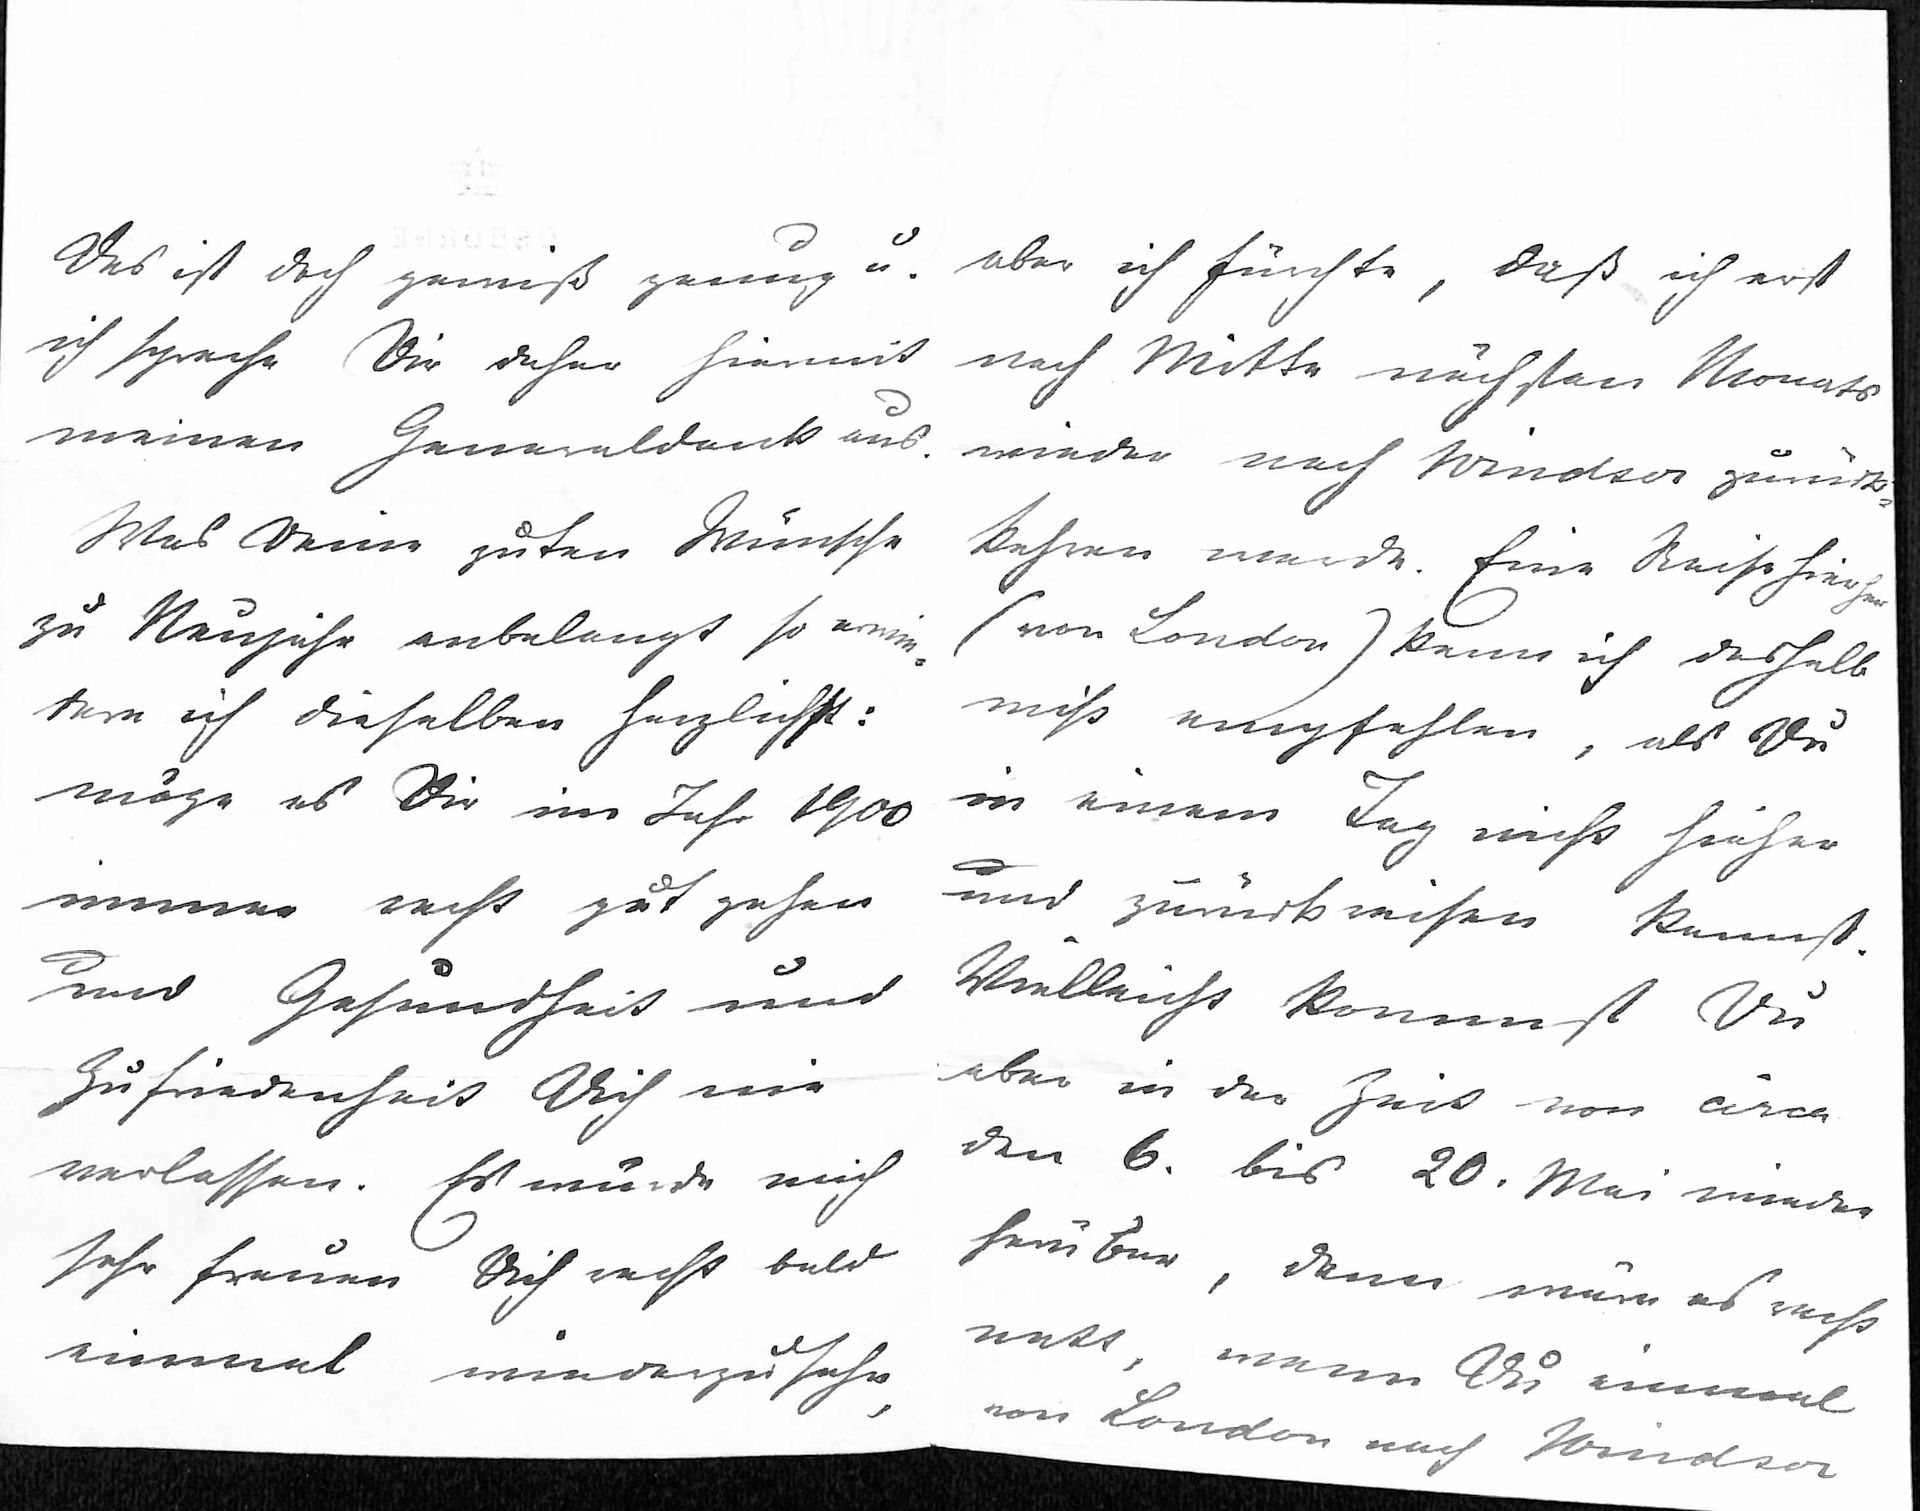 Das ist doch gewiß genug u.
ich spreche Dir daher hiermit
meinen Generaldank aus.
Was Deine guten Wünsche
zu Neujahr anbelangt so erwie-
dere ich dieselben herzlichst:
möge es Dir im Jahr 1900
immer recht gut gehen
und Gesundheit und
Zufriedenheit Dich nie
verlassen. Es würde mich
sehr freuen Dich recht bald
einmal wiederzusehn,
aber ich fürchte, daß ich erst
nach Mitte nächsten Monats
wieder nach Windsor zurück-
kehren werde. Eine Reise hierher
(von London) kann ich deshalb
nicht empfehlen, als Du
in einem Tag nicht hieher
und zurück reisen kannst.
Vielleicht kommst Du
aber in der Zeit von circa
den 6. bis 20. Mai wieder
herüber, dann wäre es recht
nett, wenn Du einmal
von London nach Windsor
OSBORNE